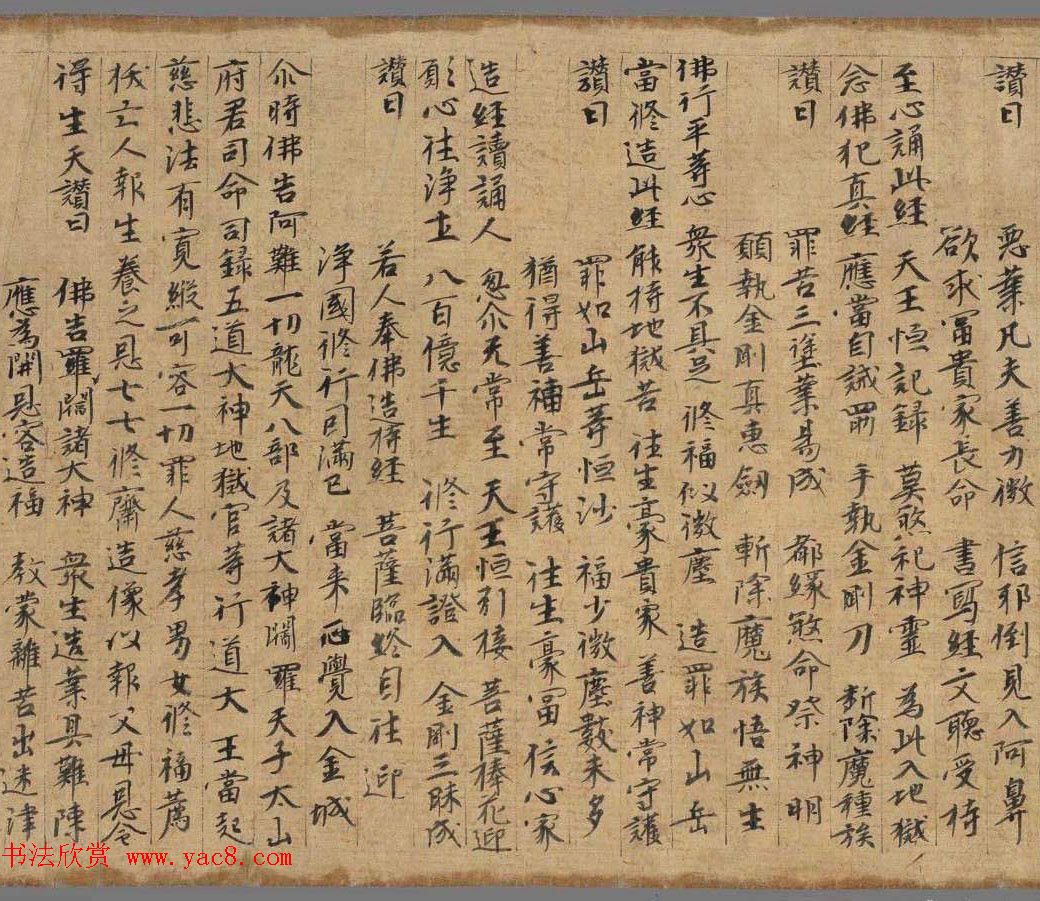 讚曰　惡業凡夫善力微　信邪倒見入阿鼻
欲求冨貴家長命　書寫經文聽受持
至心誦此經　天王恒記録　莫煞祀神靈　為此入地獄
念佛犯真經　應當自誡勗　手執金剛刀　斷除魔種族
讚曰　罪苦三塗業易成　都緣煞命祭神明
願執金剛真惠劍　斬除魔族悟無生
佛行平等心　衆生不具足　修福似微塵　造罪如山岳
當修造此經　能持地獄苦　往生豪貴家　善神常守護
讚曰　罪如山岳等恒沙　福少微塵數未多
猶得善神常守護　往生豪冨信心家
造經讀誦人　忽尒无常至　天王恒引接　菩薩捧花迎
願心往淨土　八百億千生　修行滿證入　金剛三昧成
讚曰　若人奉佛造持經　菩薩臨終自往迎
淨國修行司滿已　當来正覺入金城
尒時佛告阿難一切龍天八部及諸大神閻羅天子太山
府君司命司録五道大神地獄官等行道大王當起
慈悲法有寬縱可容一切罪人慈孝男女修福薦
拔亡人報生養之恩七七修齋造像以報父母恩令
得生天讚曰　佛告羅閻諸大神　衆生造業具難陳
應為開恩容造福　教蒙離苦出迷津
书法欣赏 www.yac8.com